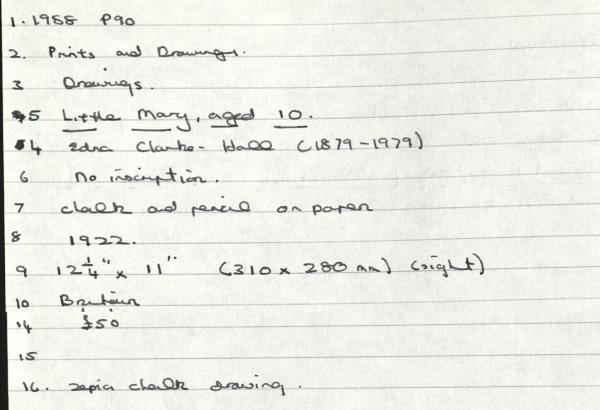 1. 1988 P90
2. Prints and Drawings.
3 Drawings.
5 Little Mary, aged 10.
4 Edna Clarke-Hall (1879-1979)
6 No inscription.
7 chalk and pencil on paper
8 1922.
9 12¼" x 11" (310 x 280 mm) (sight)
10 Britain
14 £50
15
16. sepia chalk drawing.